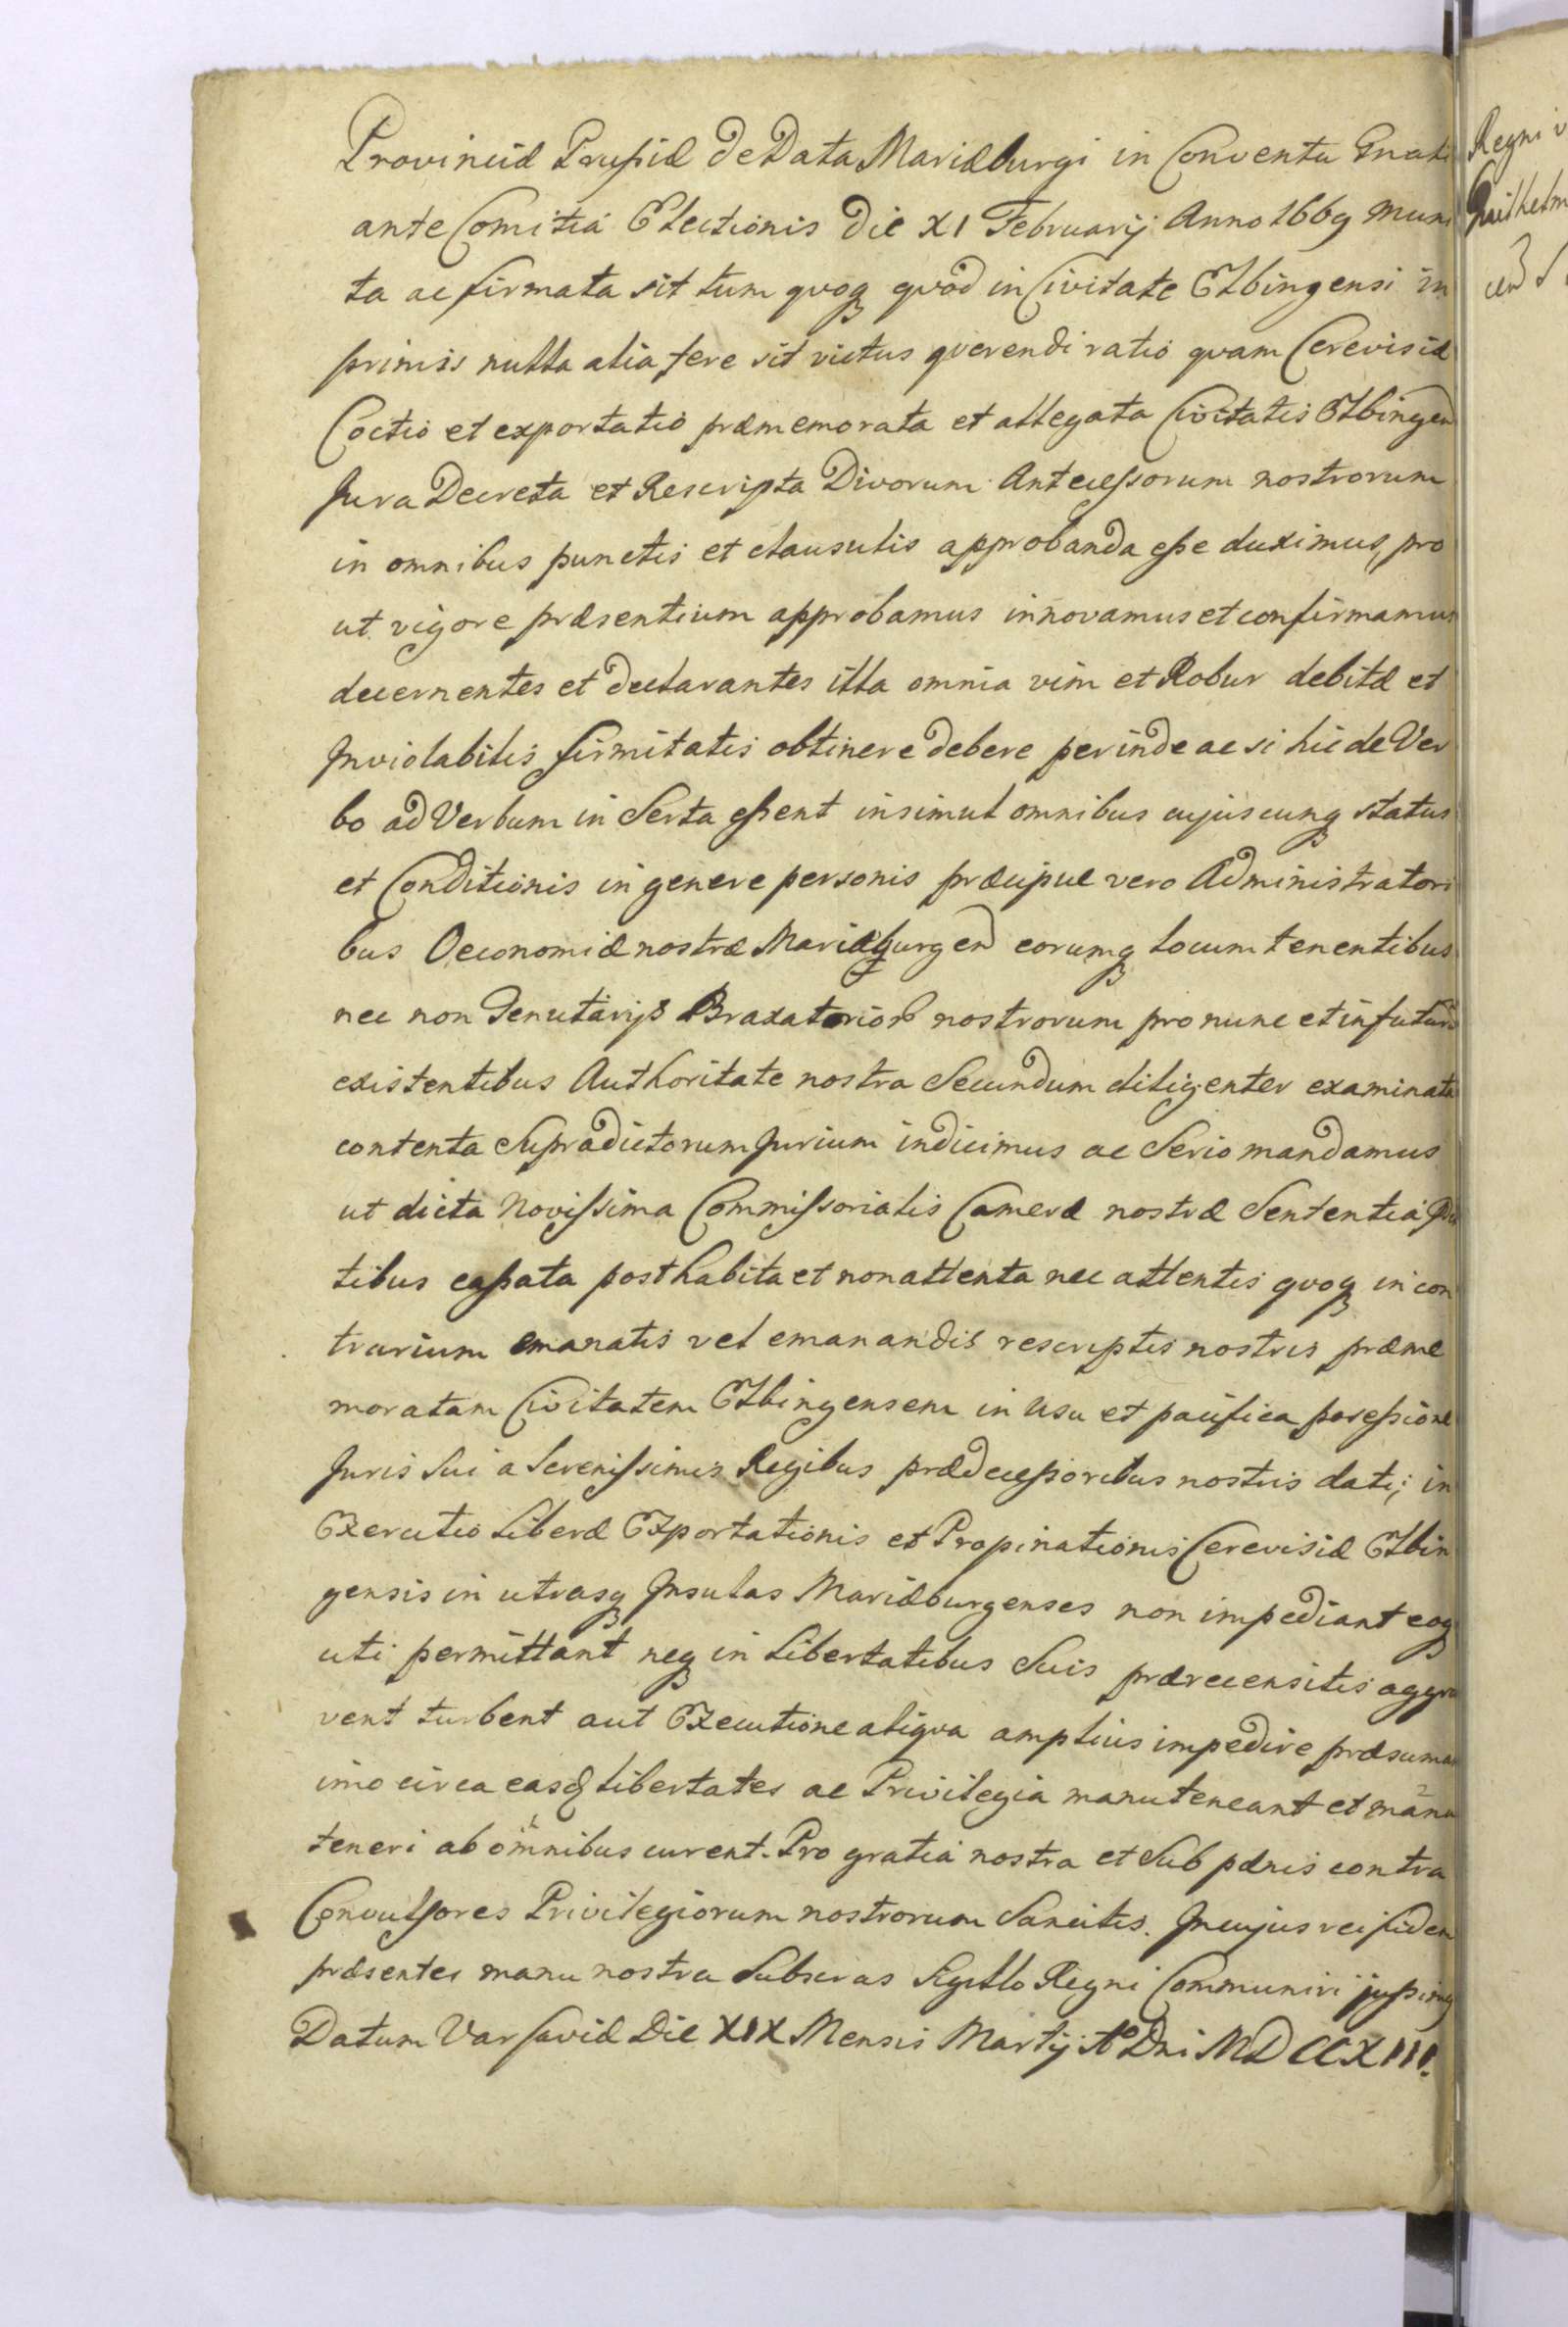 Provinciæ Prussiæ de Data Mariæburgi in Conventu Gnali
ante Comitia Electionis Die XI Februarij Anno 1669 muni
ta ac firmata sit tum quoq quod in Civitate Elbingensi in
primis nulla alia fere sit victus querendi ratio quam Cerevisiæ
Coctio et exportatio præmemorata et allegata Civitatis Elbingen
Jura Decreta et Rescripta Divorum Antecessorum nostrorum
in omnibus punctis et clausulis approbanda esse duximus, pro
ut vigore præsentium approbamus innovamus et confirmamus
decernentes et declarantes illa omnia vim et Robur debitæ et
Inviolabilis firmitatis obtinere debere perinde ac si hic de Ver
bo ad Verbum in Serta essent insimul omnibus cujuscunq status
et Conditionis in genere personis præcipue vero Administratori
bus Oeconomiæ nostræ Mariæburgen eorumq locum tenentibus
nec non Tenutarijs Braxatorior nostrorum pro nunc et in futuru
existentibus Authoritate nostra Secundum diligenter examinata
contenta Supradictorum Jurium indicimus ac Serio mandamus
ut dicta Novissima Commissorialis Cameræ nostræ Sententia
tibus cassata posthabita et non attenta nec attentis quoq in con
trarium emanatis vel emanandis rescriptis nostris præme
moratam Civitatem Elbingensem in usu et pacifica possessione
Juris Sui a Serenissimis Regibus prædecessoribus nostris dati; in
Exercitio Liberæ Exportationis et Propinationis Cerevisiæ Elbin
gensis in utrasq Insulas Mariæburgenses non impediant eoq
uti permittant neq in Libertatibus Suis prærecensitis aggra
vent turbent aut Executione aliqua amplius impedire præsumant
imo circa easd Libertates ac Privilegia manuteneant et manu
teneri ab omnibus curent. Pro gratia nostra et Sub pænis contra
Convulsores Privilegiorum nostrorum Sancitis. In cujus rei fidem
præsentes manu nostra Subscr as Sigillo Regni Communiri jussimq
Datum Varsaviæ Die XIX Mensis Martij Ao Dni MDCCXIII.
Regni